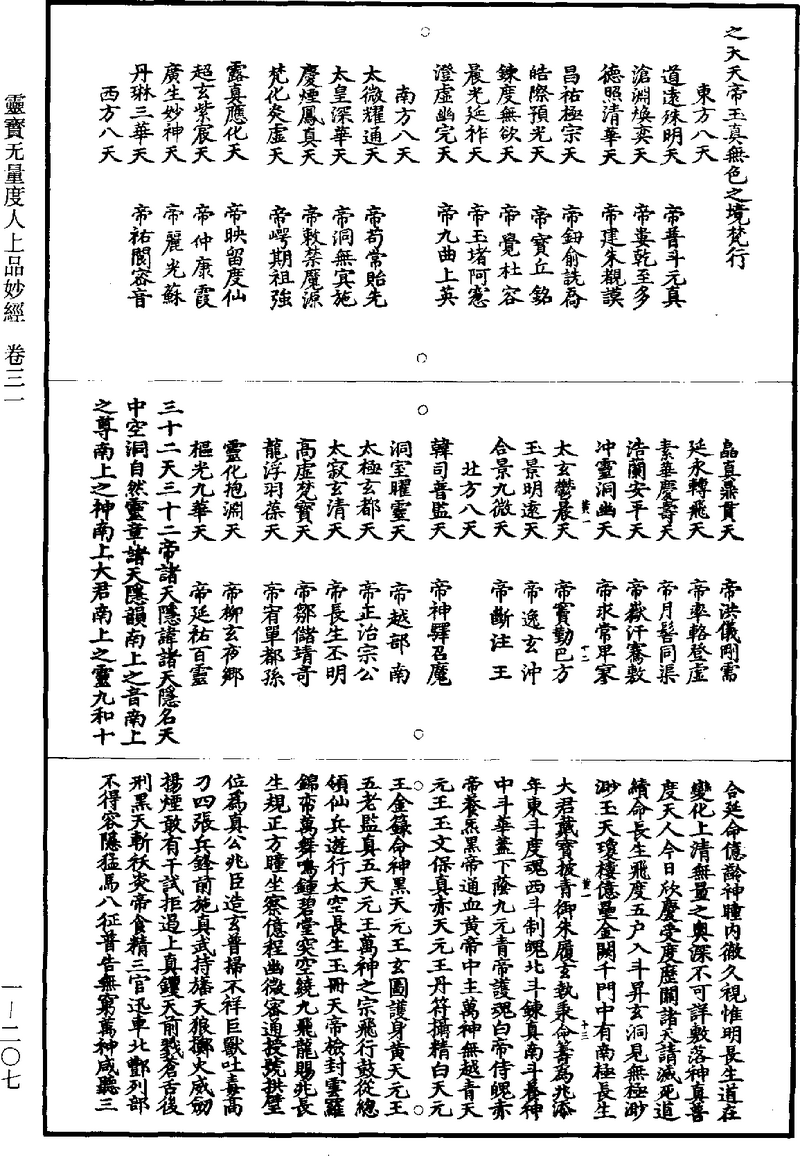 靈寶无量度人上品妙經　卷三一
一－二〇七
之天天帝玉真無色之境梵行
東方八天
道遠殊明天　帝普斗元真
滄淵煥奕天　帝婁乾至多
德照清華天　帝建朱觀謨
昌祐極宗天　帝鈕俞詵喬
皓際預光天　帝寶丘銘
鍊度無欲天　帝覺杜容
晨光延祚天　帝玉堵阿憲
澄虛幽完天　帝九曲上英
南方八天
太微耀通天　帝苟常貽先
太皇深華天　帝洞無冥施
慶煙鳳真天　帝敕禁魔源
梵化炎虛天　帝崿期祖強
露真應化天　帝映留度仙
超玄紫宸天　帝仲康霞
廣生妙神天　帝麗光蘇
丹琳三華天　帝祐閣容音
西方八天
磊真鼎貫天　帝洪儀剛需
延永轉飛天　帝率輅登虛
素華慶壽天　帝月髻同渠
浩蘭安平天　帝歡汗騫敷
沖靈洞幽天　帝求常卑寥
太玄鬱晨天　帝竇勤巴方
玉景明遠天　帝逸玄沖
合景九微天　帝斷注王
北方八天
韓司普監天　帝神驛召魔
洞室曜靈天　帝越部南
太極玄都天　帝正治宗公
太寂玄清天　帝長生丕明
高虛梵寶天　帝鄒儲靖奇
龍浮羽葆天　帝宥單都孫
靈化抱淵天　帝柳玄夜鄉
樞光九華天　帝延祐百靈
三十二天三十二帝諸天隱諱諸天隱名天
中空洞自然靈章諸天隱韻南上之音南上
之尊南上之神南上大君南上之靈九和十
合延命億齡神瞳內徹久視惟明長生道在
變化上清無量之奧深不可詳敷落神真普
度天人今日欣慶受度歷關諸天請滅死道
續命長生飛度五戶入斗昇玄洞見無極渺
渺玉天瓊樓億壘金闕千門中有南極長生
大君戴寶披青御朱履玄執秉命籌為兆添
年東斗度魂西斗制魄北斗鍊真南斗養神
中斗華蓋下蔭九元青帝護魂白帝侍魄赤
帝養炁黑帝通血黃帝中主萬神無越青天
元王玉文保真赤天元王丹符攝精白天元
王金籙命神黑天元王玄圖護身黃天元王
五老監真五天元王萬神之宗飛行鼓從總
領仙兵遊行太空長生玉冊天帝檢封雲羅
錦帝萬舞鳴鍾碧堂突空繞九飛龍賜兆長
生規正方瞳坐察億程幽微密通接號拱璧
位為真公兆臣造玄普掃不祥巨獸吐毒高
刃四張兵鋒前施真武持旛天狼擲火威劒
揚煙敢有干試拒遏上真钁天前戮蒼舌後
刑黑天斬祅炎帝食精三官迅車北酆列部
不得容隱猛馬八征普告無窮萬神咸聽三